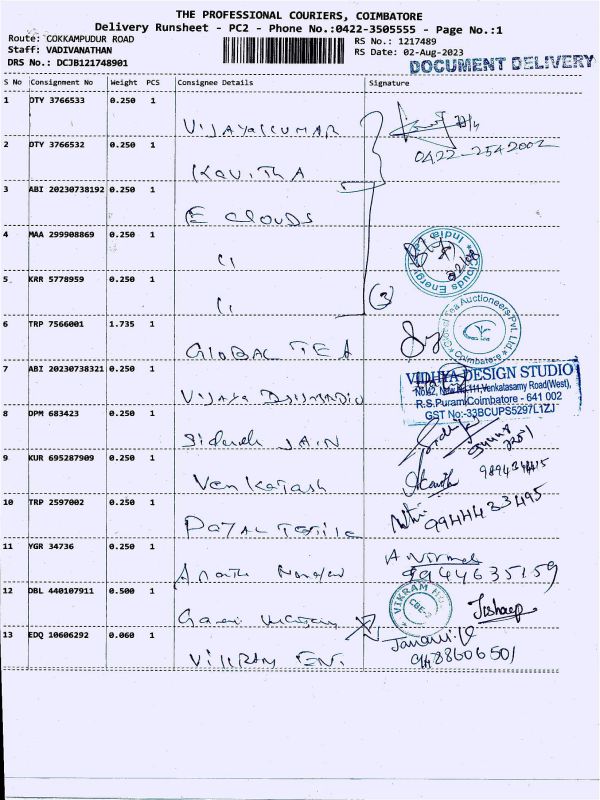 THE PROFESSIONAL COURIERS, COIMBATORE
Delivery Runsheet - PC2 - Phone No.:0422-3505555 - Page No.:1
Route: COKKAMPUDUR ROAD
RS No.: 1217489
Staff: VADIVANATHAN
RS Date: 02-Aug-2023
DRS No.: DCJB121748901
DOCUMENT DELIVERY
S No Consignment No Weight PCS Consignee Details Signature
1 DTY 3766533 0.250 1 VIJAYAKUMAR
0422-2542002
2 DTY 3766532 0.250 1 KAVITHA
3 ABI 20230738192 0.250 1 E CLOUDS
4 MAA 299908869 0.250 1 "
Clouds Energy India
02/08
5 KRR 5778959 0.250 1 "
3
6 TRP 7566001 1.735 1 GLOBAL TEA
Global Tea Auctioneers Pvt. Ltd.
Coimbatore
7 ABI 20230738321 0.250 1 VIJAYA
VIDHYA DESIGN STUDIO
Venkatasamy Road(West),
R.S.Puram, Coimbatore - 641 002
GST No:-33BCUPS5297L1ZJ
8 DPM 683423 0.250 1 JAIN
9 KUR 695287909 0.250 1 Venkatash
10 TRP 2597002 0.250 1
9944433495
11 YGR 34736 0.250 1
A Nirmal
9944635159
12 DBL 440107911 0.500 1
VIKRAM
CBE-2
13 EDQ 10606292 0.060 1 VIKRAM ENT.
Janani.V
9488606501